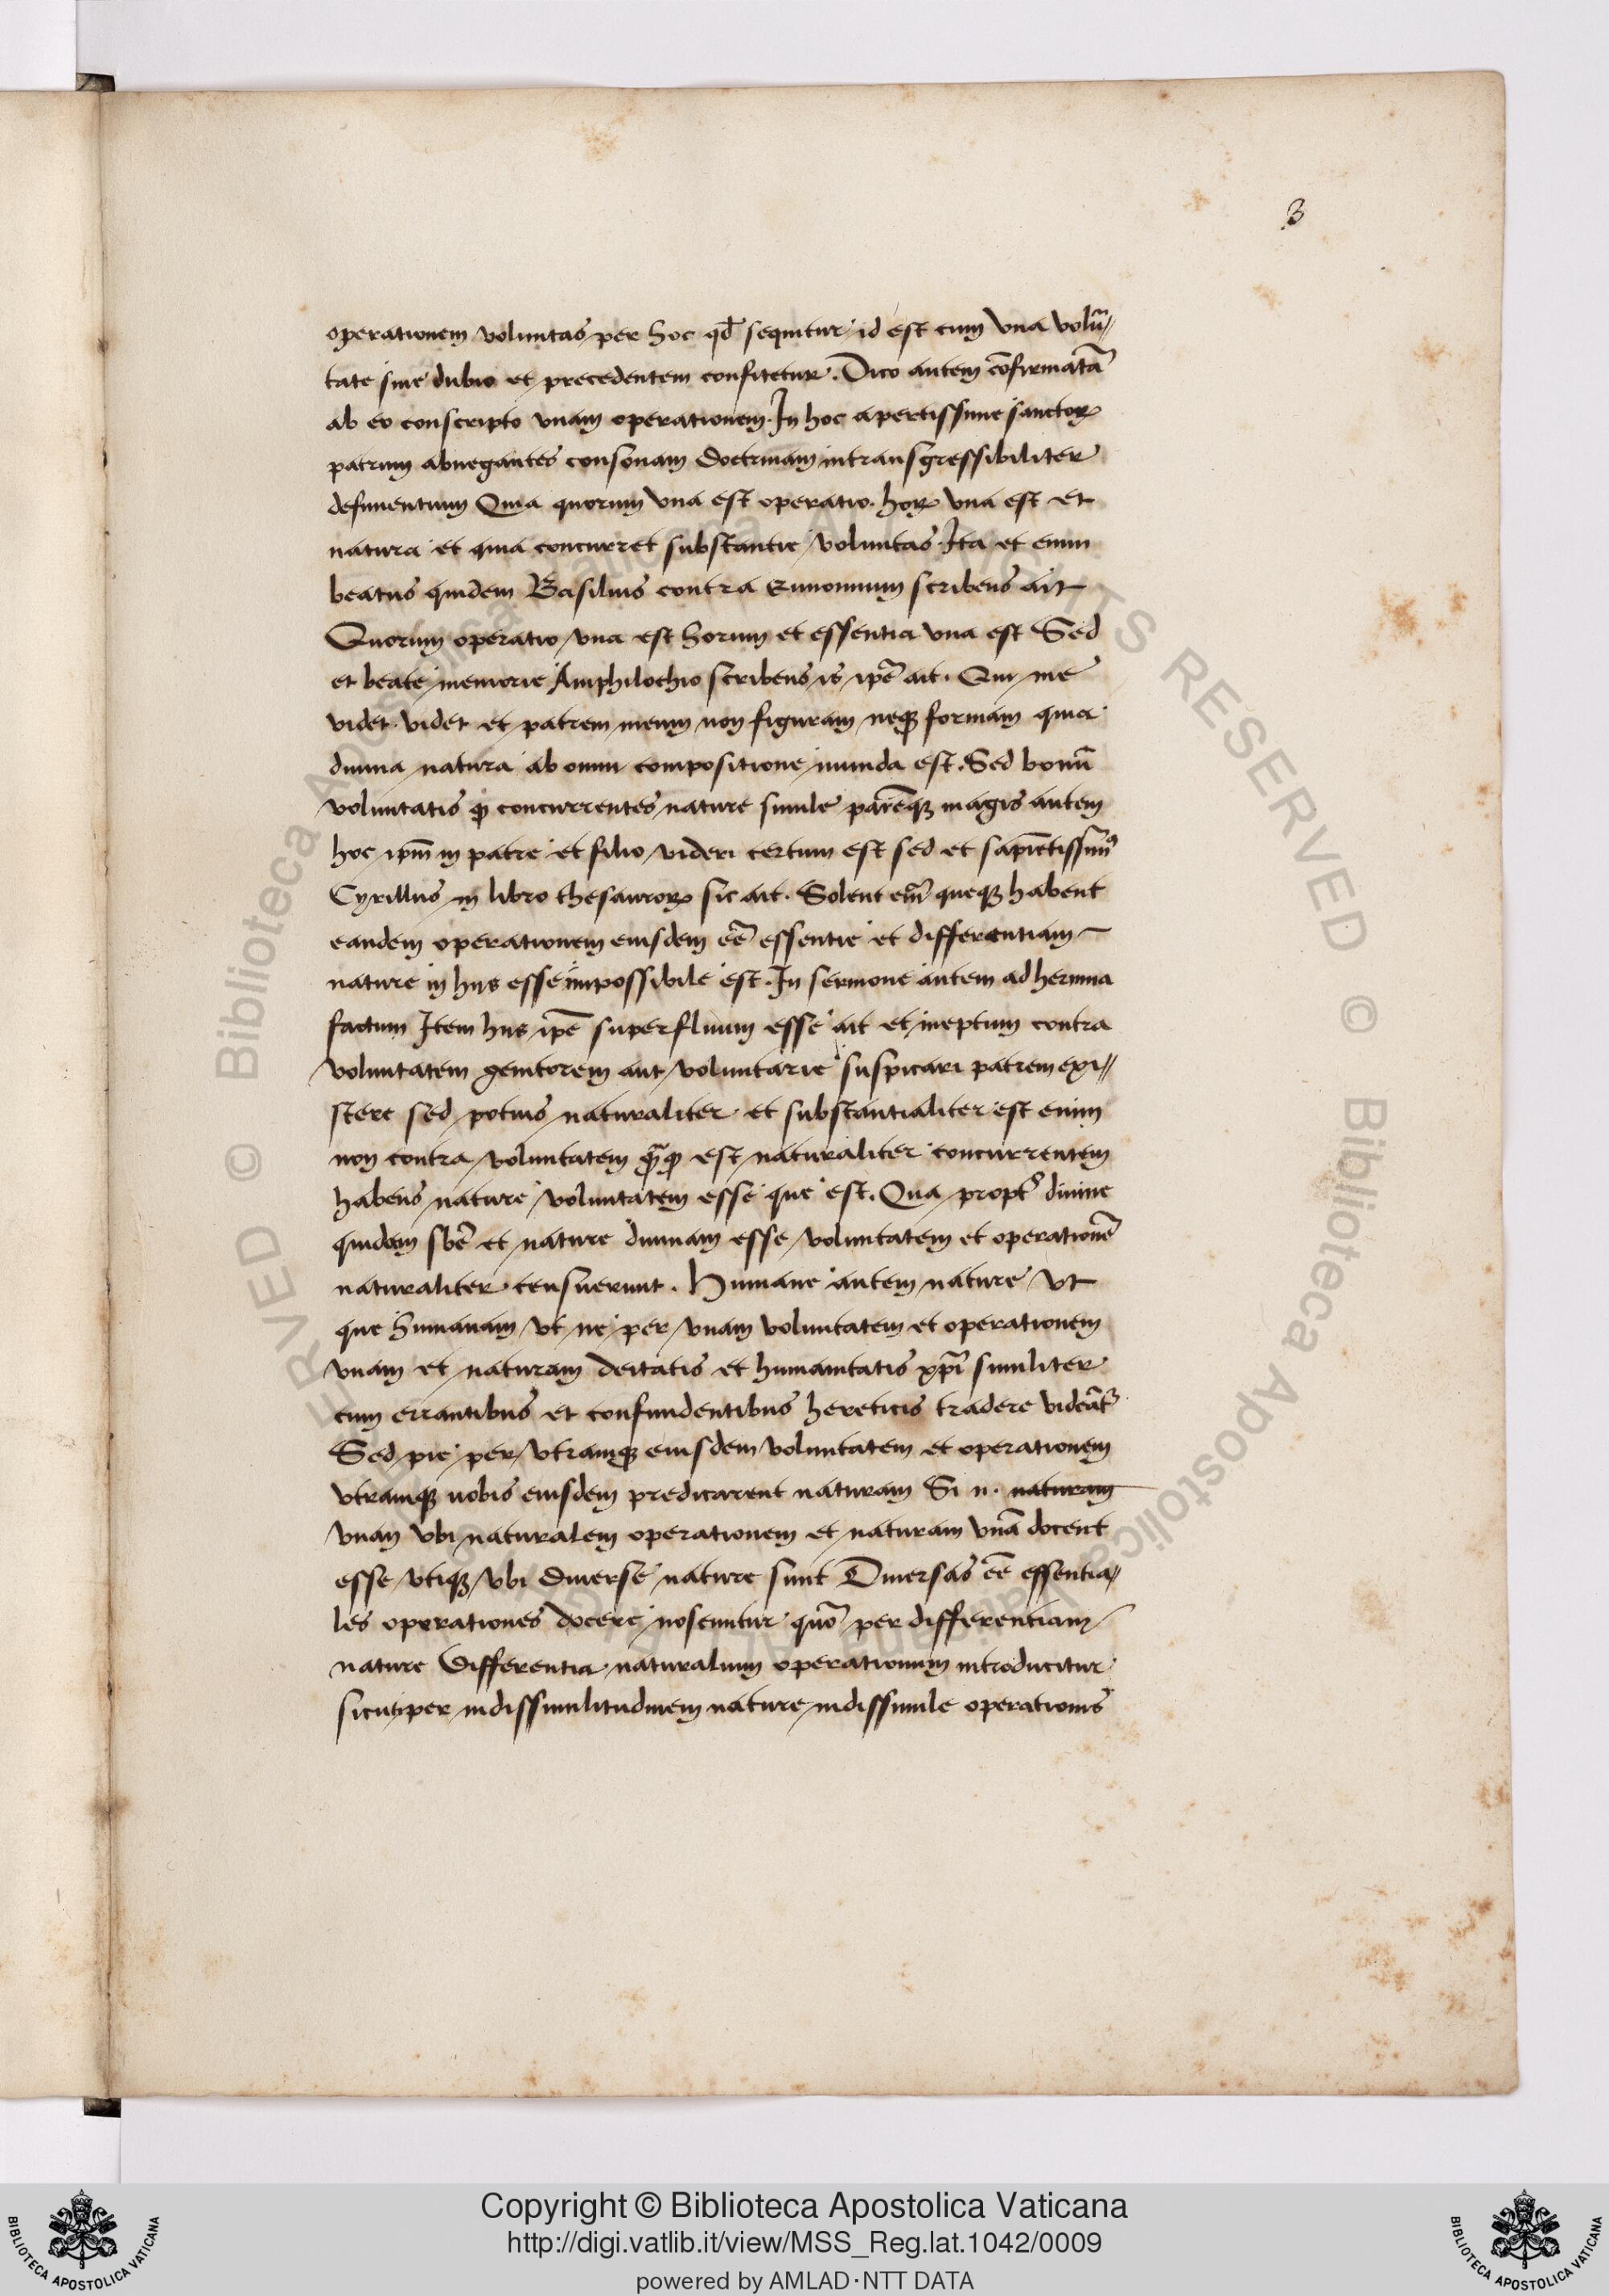 3
operationem voluntas per hoc qd̄ sequitur id est cum vna volū„
tate sine dubio et precedentem confitetur. Dico autem cōfirmatā
ab eo conscripto vnam operationem. In hoc apertissime sanctoꝝ
patrum abnegantes consonam doctrinam intransgressibiliter
definientium Quia quorum vna est operatio. hoꝝ vna est et
natura et qua concurret substantie voluntas. Ita et enim
beatus quidem Basilius contra Eunomium scribens ait
Quorum operatio vna est horum et essentia vna est Sed
et beate memorie Amphilochio scribens is ip̄e ait. Qui me
videt. videt et patrem meum non figuram neqꝫ formam quia
diuina natura ab omni compositione munda est. Sed bonū
voluntatis ꝙ concurrentes nature simile parēqꝫ magis autem
hoc ip̄m in patre et filio videri certum est sed et sapiētissimꝰ
Cyrillus in libro thesauroꝝ sic ait. Solent em̄ queqꝫ habent
eandem operationem eiusdem eē essentie et differentiam
nature in hijs esse impossibile est. In sermone autem ad hermia
factum Item hijs ip̄e superfluum esse ait et ineptum contra
voluntatem genitorem aut voluntarie suspicari patrem exi„
stere sed potius naturaliter et substantialiter est enim
non contra voluntatem est naturaliter concurrentem
habens nature voluntatem esse que est. Qua propt̉ diuine
quidem sb̄e et nature diuinam esse voluntatem et operationē
naturaliter censuerunt. Humane autem nature vt
que humanam vt ne per vnam voluntatem et operationem
vnam et naturam deitatis et humanitatis xp̄i similiter
cum errantibus et confundentibus hereticis tradere videāt̉
Sed pie per vtramqꝫ eiusdem voluntatem et operationem
vtramqꝫ nobis eiusdem predicarent naturam Si n. naturam
vnam vbi naturalem operationem et naturam vnā docent
esse vtiqꝫ vbi diuerse nature sunt Diuersas eē essentia„
les operationes docere noscuntur quō per differentiam
nature Differentia naturalium operationum introducitur
sicut per indissimilitudinem nature indissimile operationis
Copyright © Biblioteca Apostolica Vaticana
http://digi.vatlib.it/view/MSS_Reg.lat.1042/0009
powered by AMLAD·NTT DATA
BIBLIOTECA APOSTOLICA VATICANA
BIBLIOTECA APOSTOLICA VATICANA